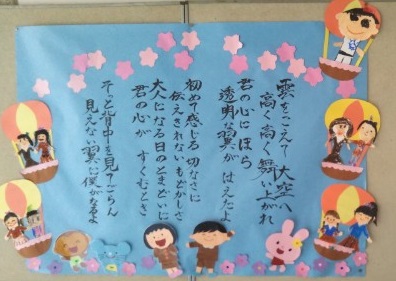 雲をこえて 大空へ
高く高く 舞い上がれ
君の心に ほら
透明な翼が はえたよ
初めて感じる切なさに
伝えきれないもどかしさ
大人になる日のとまどいに
君の心が すくむとき
そっと背中を見てごらん
見えない翼に僕がなるよ